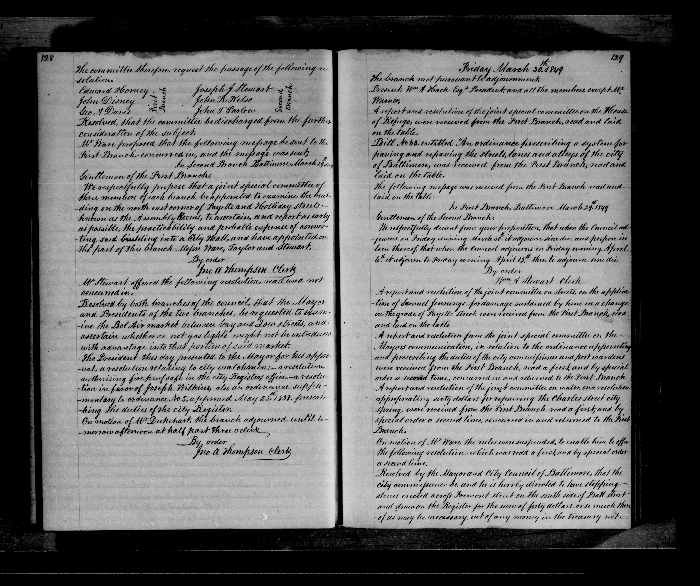 128
The committee therefore request the passage of the following re-
solution.
Edward Horney Joseph J Stewart
John Disney First Branch John K Kelso Second Branch
Geo. A Davis John T Farlow
Resolved, that the committee be discharged from the further
consideration of the subject.
Mr Ware proposed that the following message be sent to the
First Branch concurred in, and the message was sent;
In Second Branch Baltimore March 29
Gentlemen of the First Branch:
We respectfully propose that a joint special committee of
three members of each branch be appointed to examine the buil-
ding on the north east corner of Fayette and Holliday streets
known as the Assembly Rooms, to ascertain and report as early
as possible, the practicability and probable expense of conver-
ting said building into a City Hall, and have appointed on
the part of this branch Messrs Ware, Taylor and Stewart,
By order
Jno A Thompson Clerk
Mr Stewart offered the following resolution, read and not
concurred in:
Resolved by both branches of the council, that the Mayor
and Presidents of the two branches, be requested to exam-
ine the Bel Air market between Gay and streets, and
ascertain whether or not gas lights might not be introduced
with advantage into that portion of said market.
The President this day presented to the Mayor for his appro-
val, a resolution relating to city; a resolution
authorising fire proof safe in the city Registers office; a resolu-
tion in favor of Joseph Wilkins, also an ordinance supple-
mentary to ordinance No 5, approved May 25th 1838. prescri-
bing the duties of the city Register.
On motion of Mr Dukehart, the branch adjourned until to-
morrow afternoon at half past three oclock,
By order
Jno A Thompson Clerk
129
Friday March 30th 1849
The branch met pursuant to adjournment.
Present Wm H Esqr President and all the members except Mr
Warner.
A report and resolution of the joint special committee on the House
of Refuge, were received from the First Branch, read and laid
on the table.
Bill No 33. entitled, An ordinance prescribing a system for
paving and repaving the streets, lanes and alleys of the city
of Baltimore, was received from the First Branch, read and
laid on the table.
The following message was received from the First Branch read and
laid on the table.
In First Branch, Baltimore March 29th 1849
Gentlemen of the Second Branch:
We respectfully dissent from your proposition, that when the Council ad-
journ on Friday evening it adjourn sine die: and propose in
lieu thereof that when the council adjourns on Friday evening April
6th it adjourn to Friday evening April 13th then to adjourn sine die.
By order
Wm A Stewart Clerk
A report and resolution of the joint committee on streets, on the applica-
tion of Samuel Jennings, for damage sustained by him in a change
in the grade of Fayette street, were received from the First Branch, read
and laid on the table.
A report and resolution from the joint special committee on the
Mayors communication, in relation to the ordinance appointing
and prescribing the duties of the city commissioner and port wardens
were received from the First Branch, read a first, and by special
order a second time, concurred in and returned to the First Branch.
A report and resolution of the joint committee on water, and a resolution
appropriating sixty dollars for repairing the Charles street city
spring, were received from the First Branch read a first, and by
special order a second time, concurred in and returned to the First
Branch.
On motion of Mr Ware, the rules were suspended, to enable him to offer
the following resolution which was read a first, and by special order
a second time.
Resolved by the Mayor and City Council of Baltimore, that the
city commissioner be and he is hereby directed to have stepping
stones erected across Fremont street on the south side of Pratt street
and draw on the Register for the sum of forty dollars or so much there-
of as may be necessary, out of any money in the treasury not